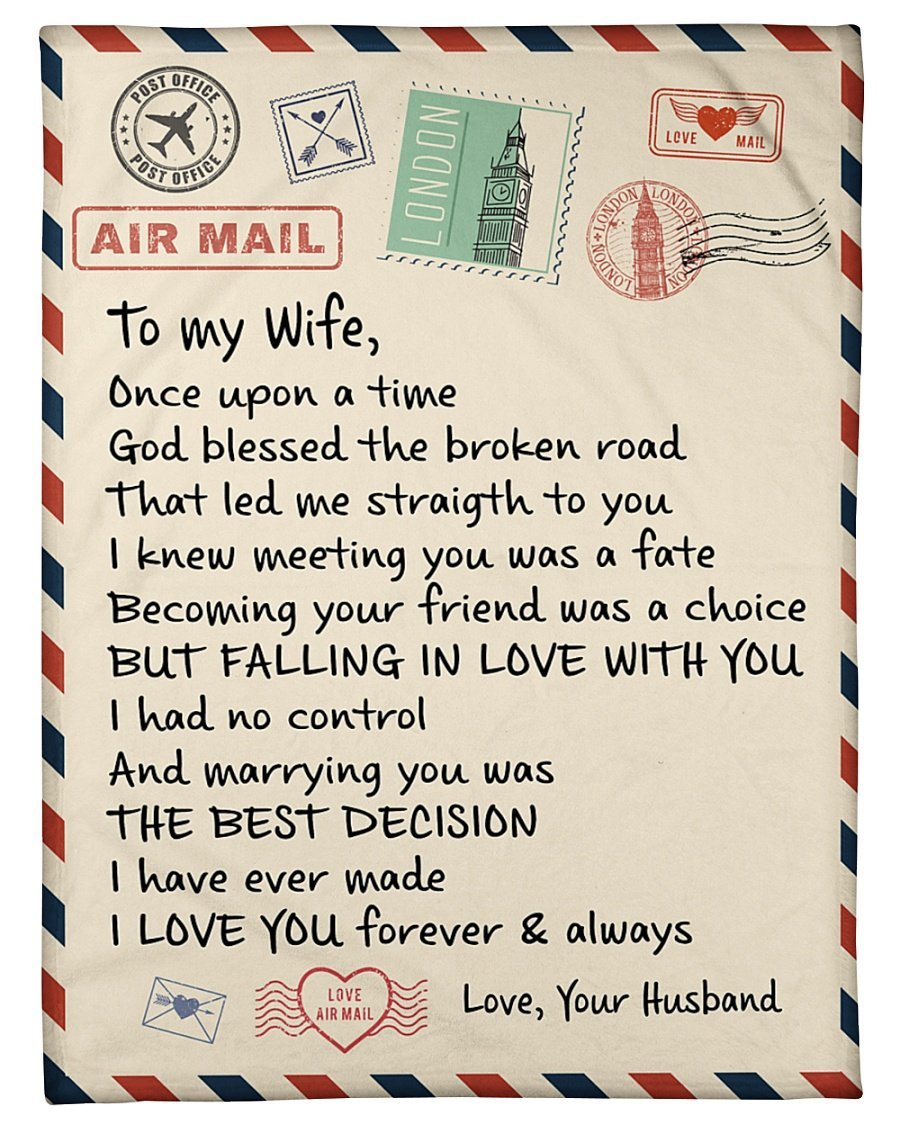 POST OFFICE
POST OFFICE
LONDON
LOVE MAIL
AIR MAIL
LONDON LONDON LONDON LONDON
To my Wife,
Once upon a time
God blessed the broken road
That led me straigth to you
I knew meeting you was a fate
Becoming your friend was a choice
BUT FALLING IN LOVE WITH YOU
I had no control
And marrying you was
THE BEST DECISION
I have ever made
I LOVE YOU forever & always
LOVE
AIR MAIL
Love, Your Husband